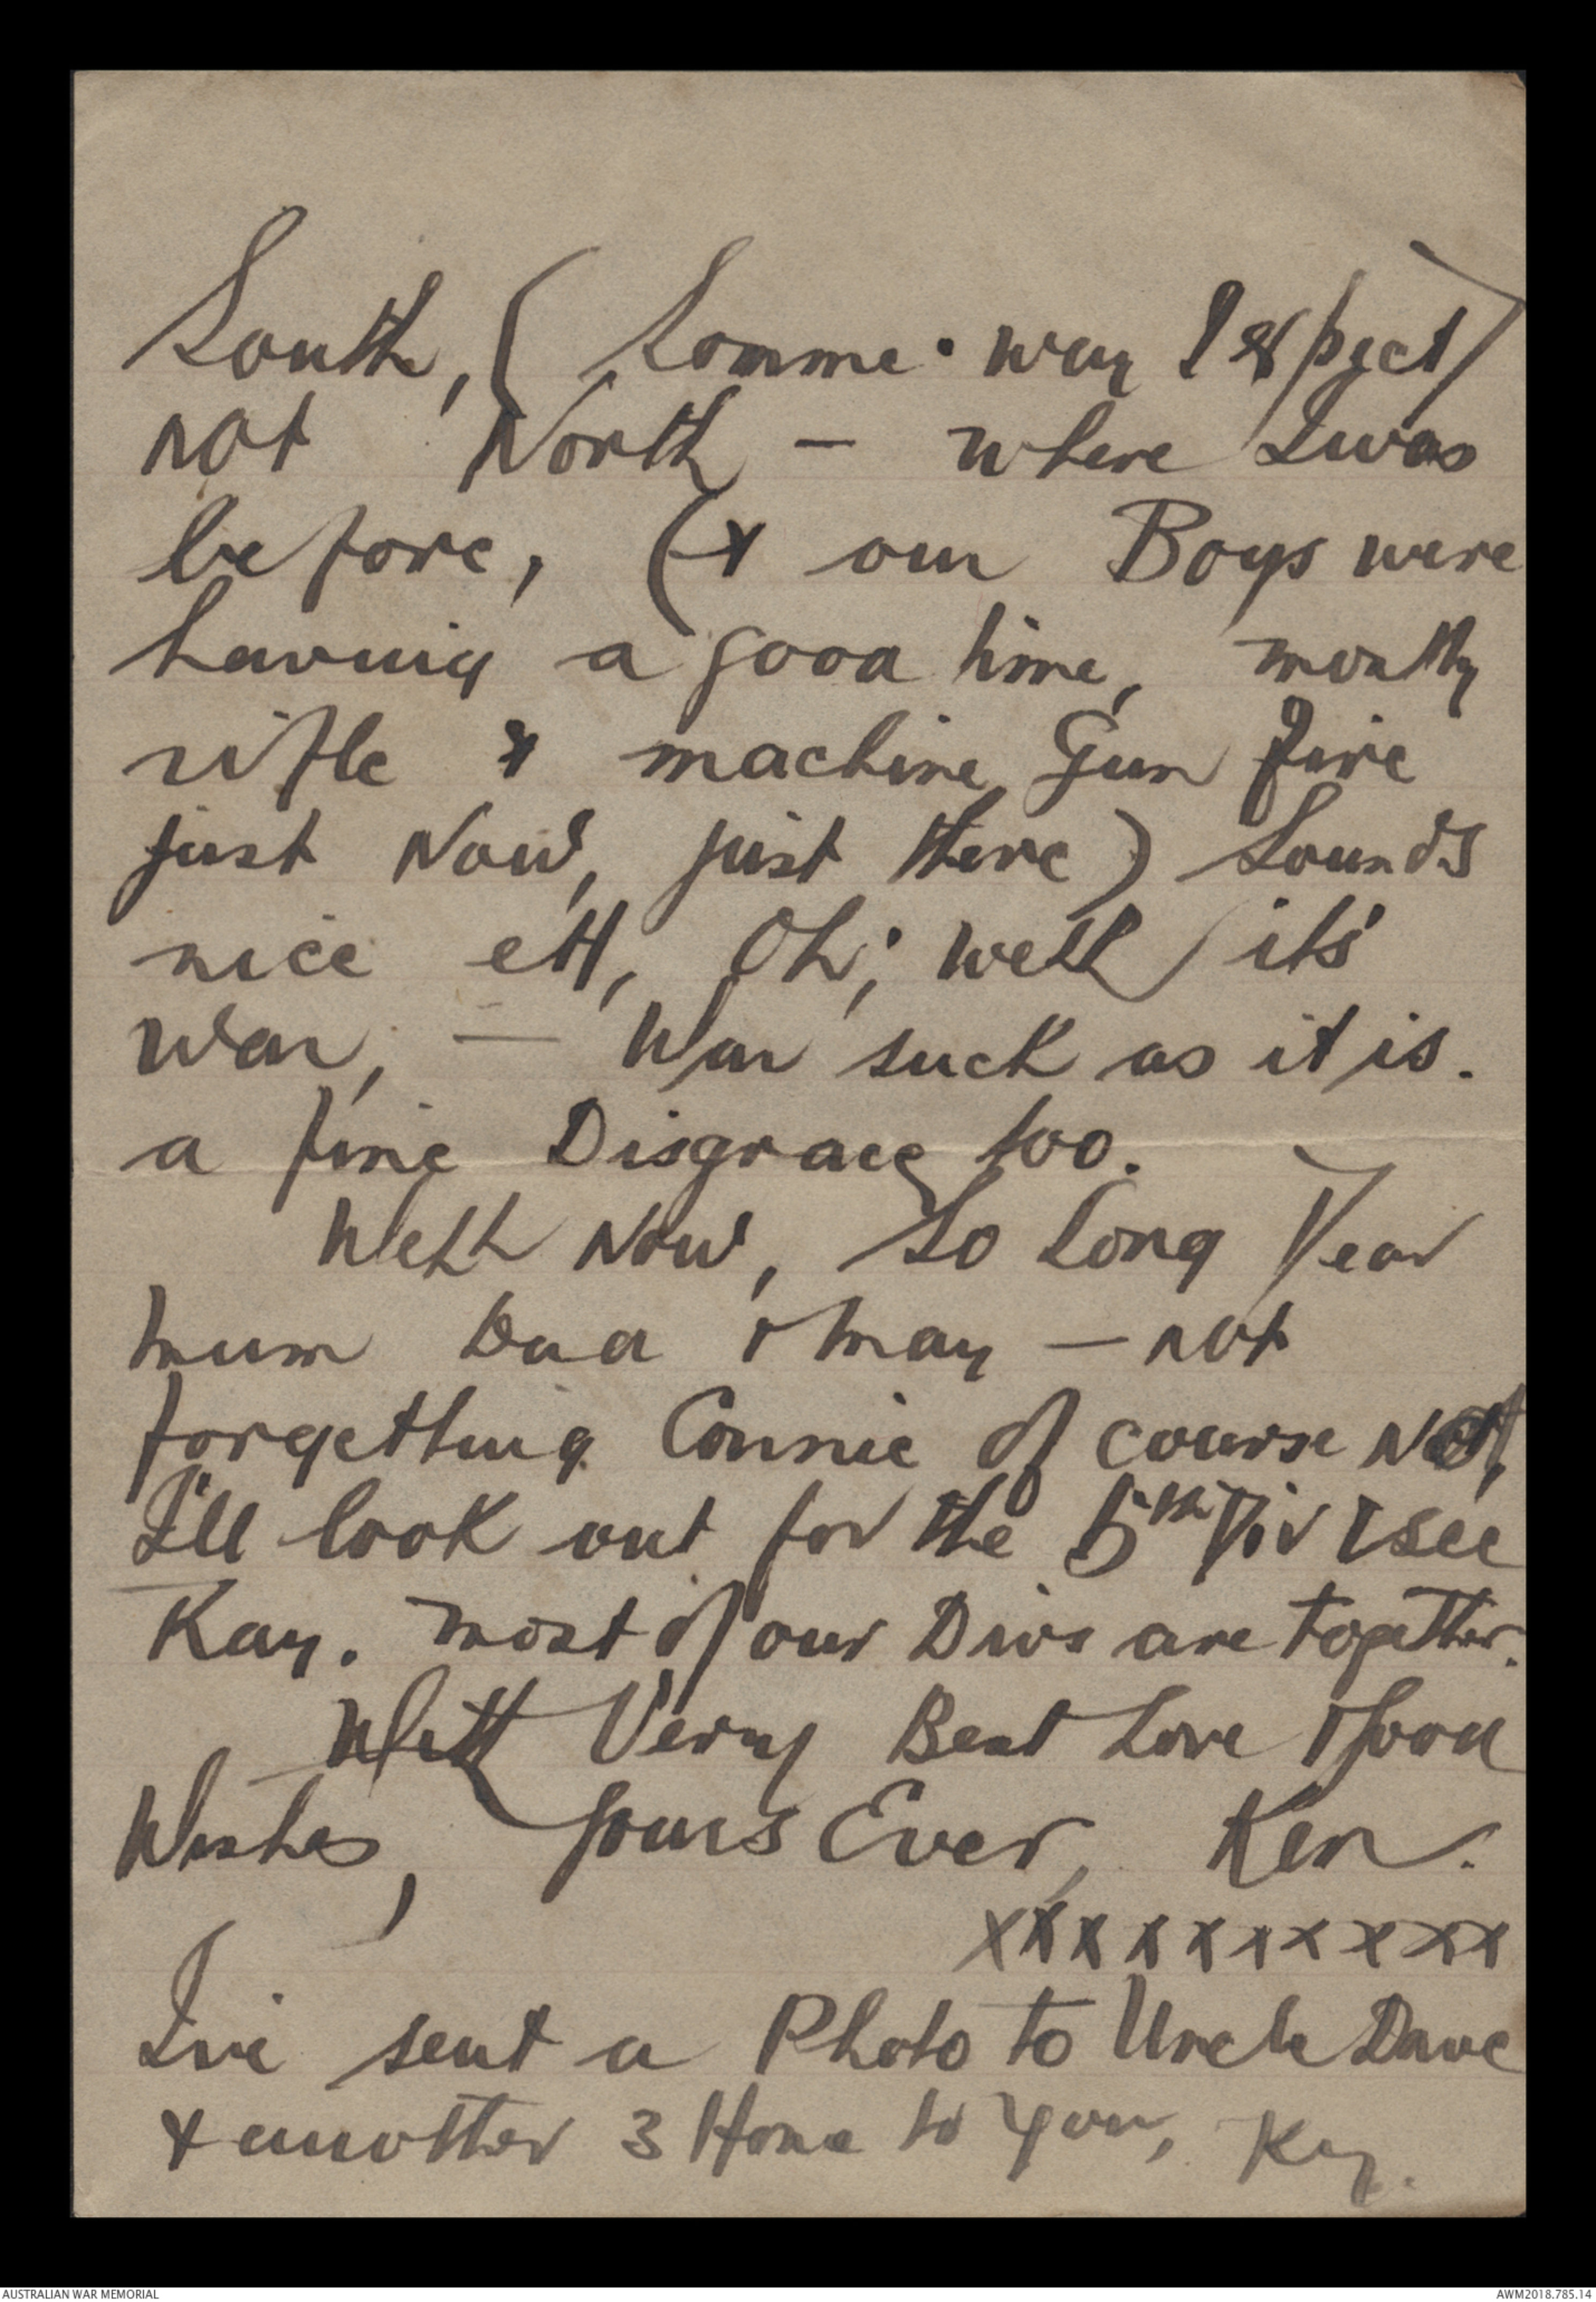 South, (Somme way I expect)
not North – where I was
before, (& our Boys were
having a good time, mostly
rifle & machine Gun fire
just Now, just there) Sounds
nice eH, Oh; well its
War, — War such as it is.
a fine Disgrace too.
Well Now, So Long Dear
Mum Dad & May — not
forgetting Connie of course Not,
I'll look out for the 5th Div & see
Kay. most of our Divs are together.
With Very Best Love & Good
Wishes, Yours Ever, Ken.
xxxxxxxxxx
I've sent a Photo to Uncle Dave
& another 3 Home to You, Ky.
AUSTRALIAN WAR MEMORIAL
AWM2018.785.14